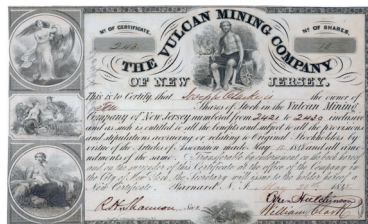 Nº OF CERTIFICATE.
Nº OF SHARES.
THE VULCAN MINING COMPANY
OF NEW JERSEY.
This is to Certify, that Joseph is the owner of
Ten Shares of Stock in the Vulcan Mining
Company of New Jersey numbered from 2421 to 2430 inclusive
and as such is entitled to all the benefits and subject to all the provisions
and stipulations accruing or relating to Original Stockholders by
virtue of the Articles of Association made May 1848 and all am
endments of the same. Transferable by endorsement on the back hereof
and on the surrender of this Certificate at the office of the Company in
the City of New York, the Secretary will issue to the holder hereof a
New Certificate. Barnard N. J.
R. H. Shannon Sec.
Ezra Hutchinson
William Clark